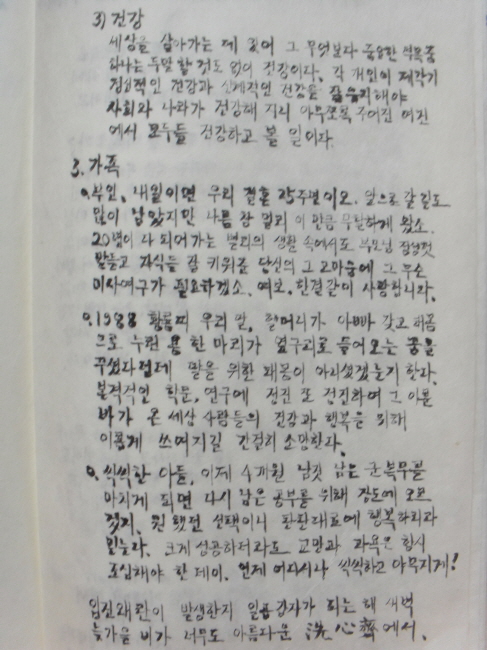 3) 건강
세상을 살아가는 데 있어 그 무엇보다 중요한 덕목중
하나는 두말 할 것도 없이 건강이다. 각 개인이 제각기
정신적인 건강과 신체적인 건강을 잘 유지해야
사회와 나라가 건강해 지니 아무쪼록 주어진 여건
에서 모두들 건강하고 볼 일이다.
3. 가족
부인, 내일이면 우리 결혼 25주년이오. 앞으로 갈 길도
많이 남았지만 나름 참 멀리 이 만큼 무탈하게 왔소.
20년이 다 되어가는 별리의 생활 속에서도 부모님 잘 섬기고
받들고 자식들 잘 키워준 당신의 그 고마움에 그 무슨
미사여구가 필요하겠소. 여보. 한결같이 사랑합니다.
1988 황룡띠 우리 딸, 할머니가 아빠 갖고 태몽
으로 누런 용 한 마리가 옆구리로 들어오는 꿈을
꾸셨다던데 딸을 위한 태몽이 아니셨겠는가 한다.
본격적인 학문, 연구에 정진 또 정진하여 그 이룬
바가 온 세상 사람들의 건강과 행복을 위해
이롭게 쓰여지길 간절히 소망한다.
씩씩한 아들, 이제 4개월 남짓 남은 군복무를
마치게 되면 다시 남은 공부를 위해 장도에 오르
겠지. 원했던 선택이니 만만대로에 행복하리라
믿는다. 크게 성공하더라도 교만과 과욕은 항시
조심해야 한데이. 언제 어디서나 씩씩하고 야무지게!
임진왜란이 발생한지 일곱갑자가 되는 해 새벽
늦가을 비가 너무도 아름다운 洗心齋에서.